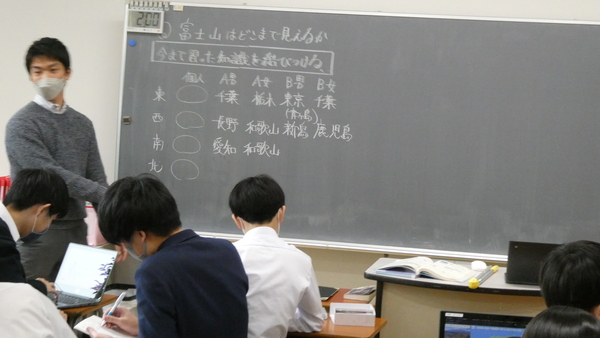 2:00
富士山はどこまで見えるか
今まで習った知識を結びつける
個人 A男 A女 B男 B女
東 千葉 栃木 東京 千葉
西 長野 和歌山 鹿児島
南 愛知 和歌山
北